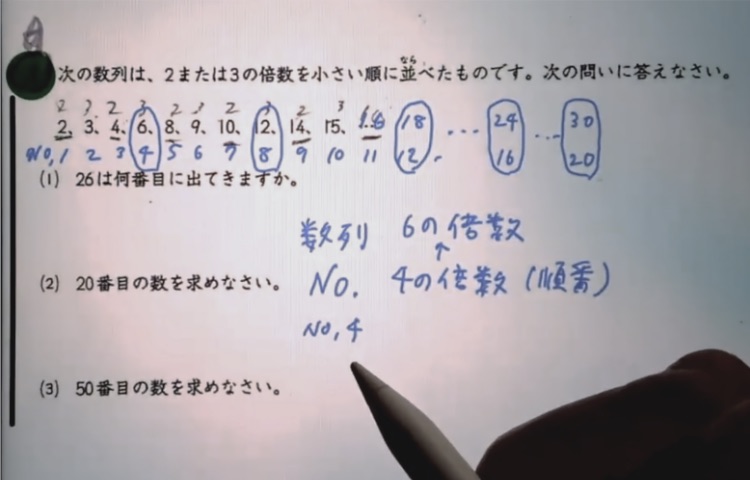 次の数列は、2または3の倍数を小さい順に並べたものです。次の問いに答えなさい。
なら
2 3 2 3 2 3 2 3 2 3
2、3、4、6、8、9、10、12、14、15、16 18 ... 24 ... 30
No,1 2 3 4 5 6 7 8 9 10 11 12, 16 20
(1) 26は何番目に出てきますか。
数列 6の倍数
↑
(2) 20番目の数を求めなさい。 No. 4の倍数(順番)
No,4
(3) 50番目の数を求めなさい。